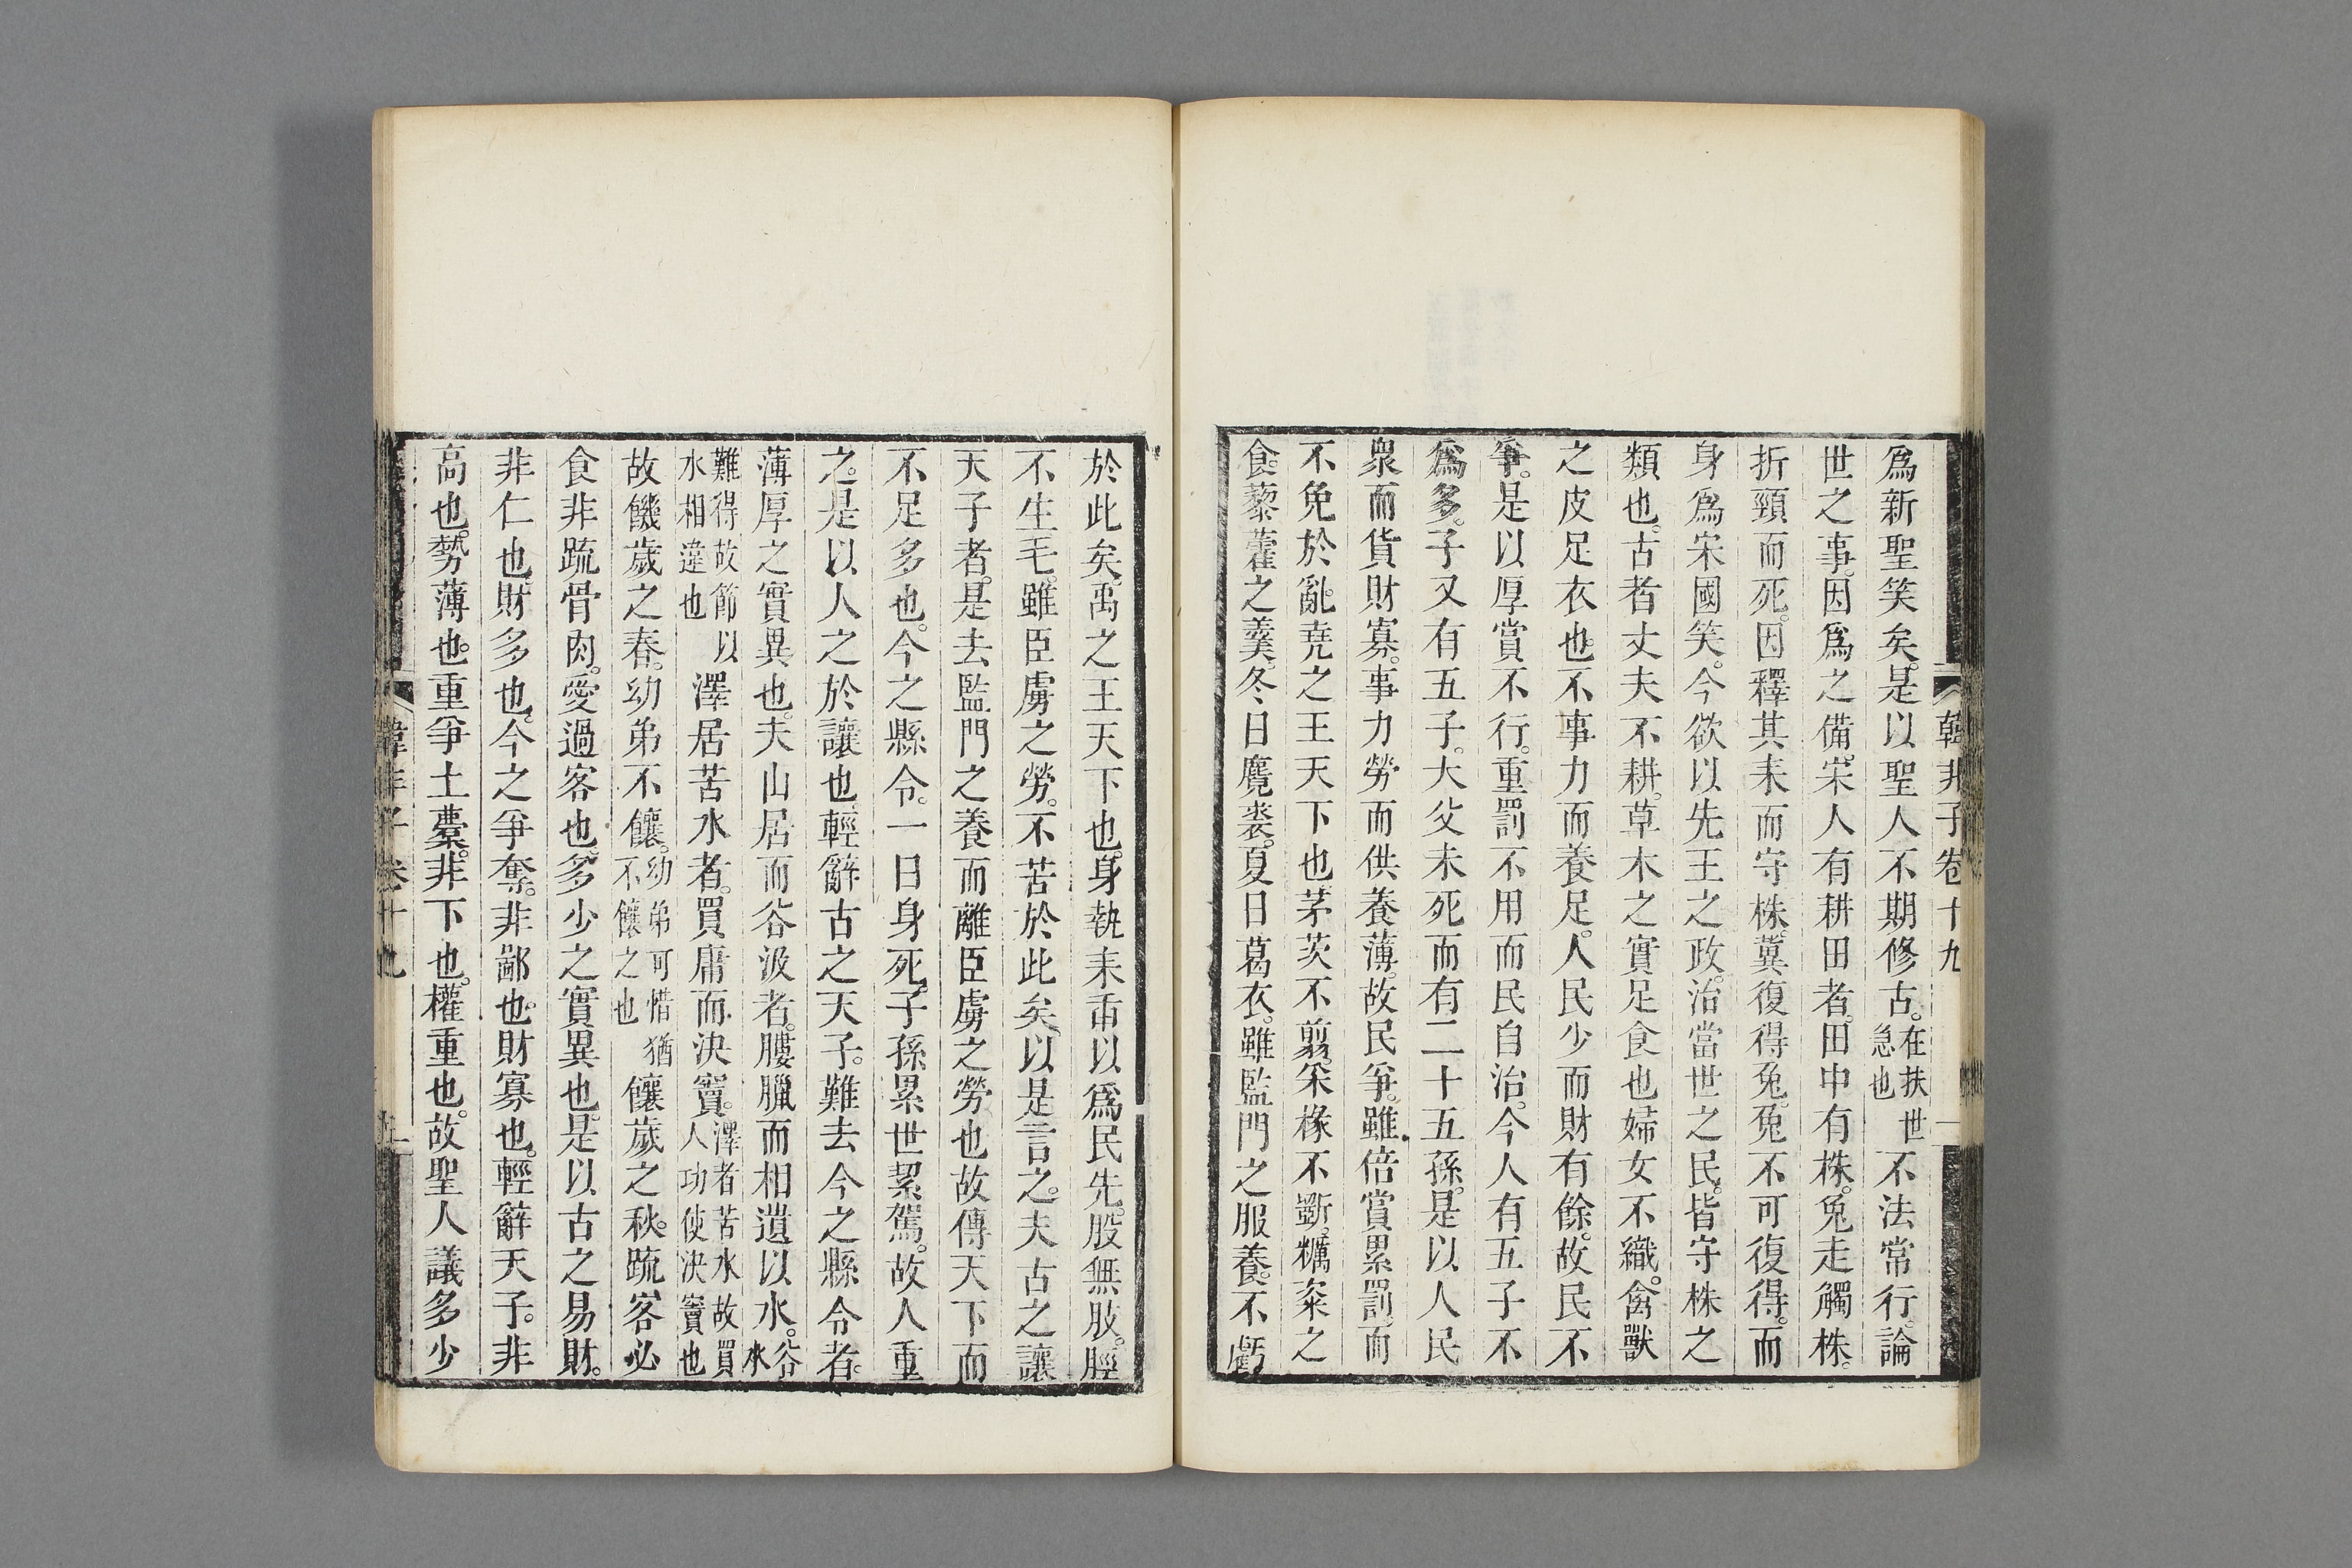 韓非子卷十九
一
爲新聖笑矣。是以聖人不期修古。在扶世急也不法常行。論
世之事。因爲之備。宋人有耕田者。田中有株。兔走觸株。
折頸而死。因釋其耒而守株。冀復得兔。兔不可復得。而
身爲宋國笑。今欲以先王之政。治當世之民。皆守株之
類也。古者丈夫不耕。草木之實足食也婦女不織。禽獸
之皮足衣也。不事力而養足。人民少而財有餘。故民不
爭。是以厚賞不行。重罰不用而民自治。今人有五子不
爲多。子又有五子。大父未死而有二十五孫。是以人民
衆而貨財寡。事力勞而供養薄。故民爭。雖倍賞累罰而
不免於亂。堯之王天下也。茅茨不剪。采椽不斲。糲粢之
食。藜藿之羹。冬日麑裘。夏日葛衣。雖監門之服養。不虧
於此矣。禹之王天下也。身執耒臿以爲民先。股無胈。脛
不生毛。雖臣虜之勞。不苦於此矣。以是言之。夫古之讓
天子者。是去監門之養而離臣虜之勞也故傳天下而
不足多也。今之縣令。一日身死。子孫累世絜駕。故人重
之。是以人之於讓也。輕辭古之天子。難去今之縣令者。
薄厚之實異也。夫山居而谷汲者。膢臘而相遺以水。谷水
難得故節以水相違也澤居苦水者。買庸而決竇。澤者苦水故買人功使決竇也
故饑歲之春。幼弟不饟。幼弟可惜猶不饟之也饟歲之秋。疏客必
食非疏骨肉。愛過客也。多少之實異也。是以古之易財。
非仁也財多也。今之爭奪。非鄙也。財寡也。輕辭天子。非
高也。勢薄也。重爭土橐。非下也。權重也。故聖人議多少
韓非子卷十九